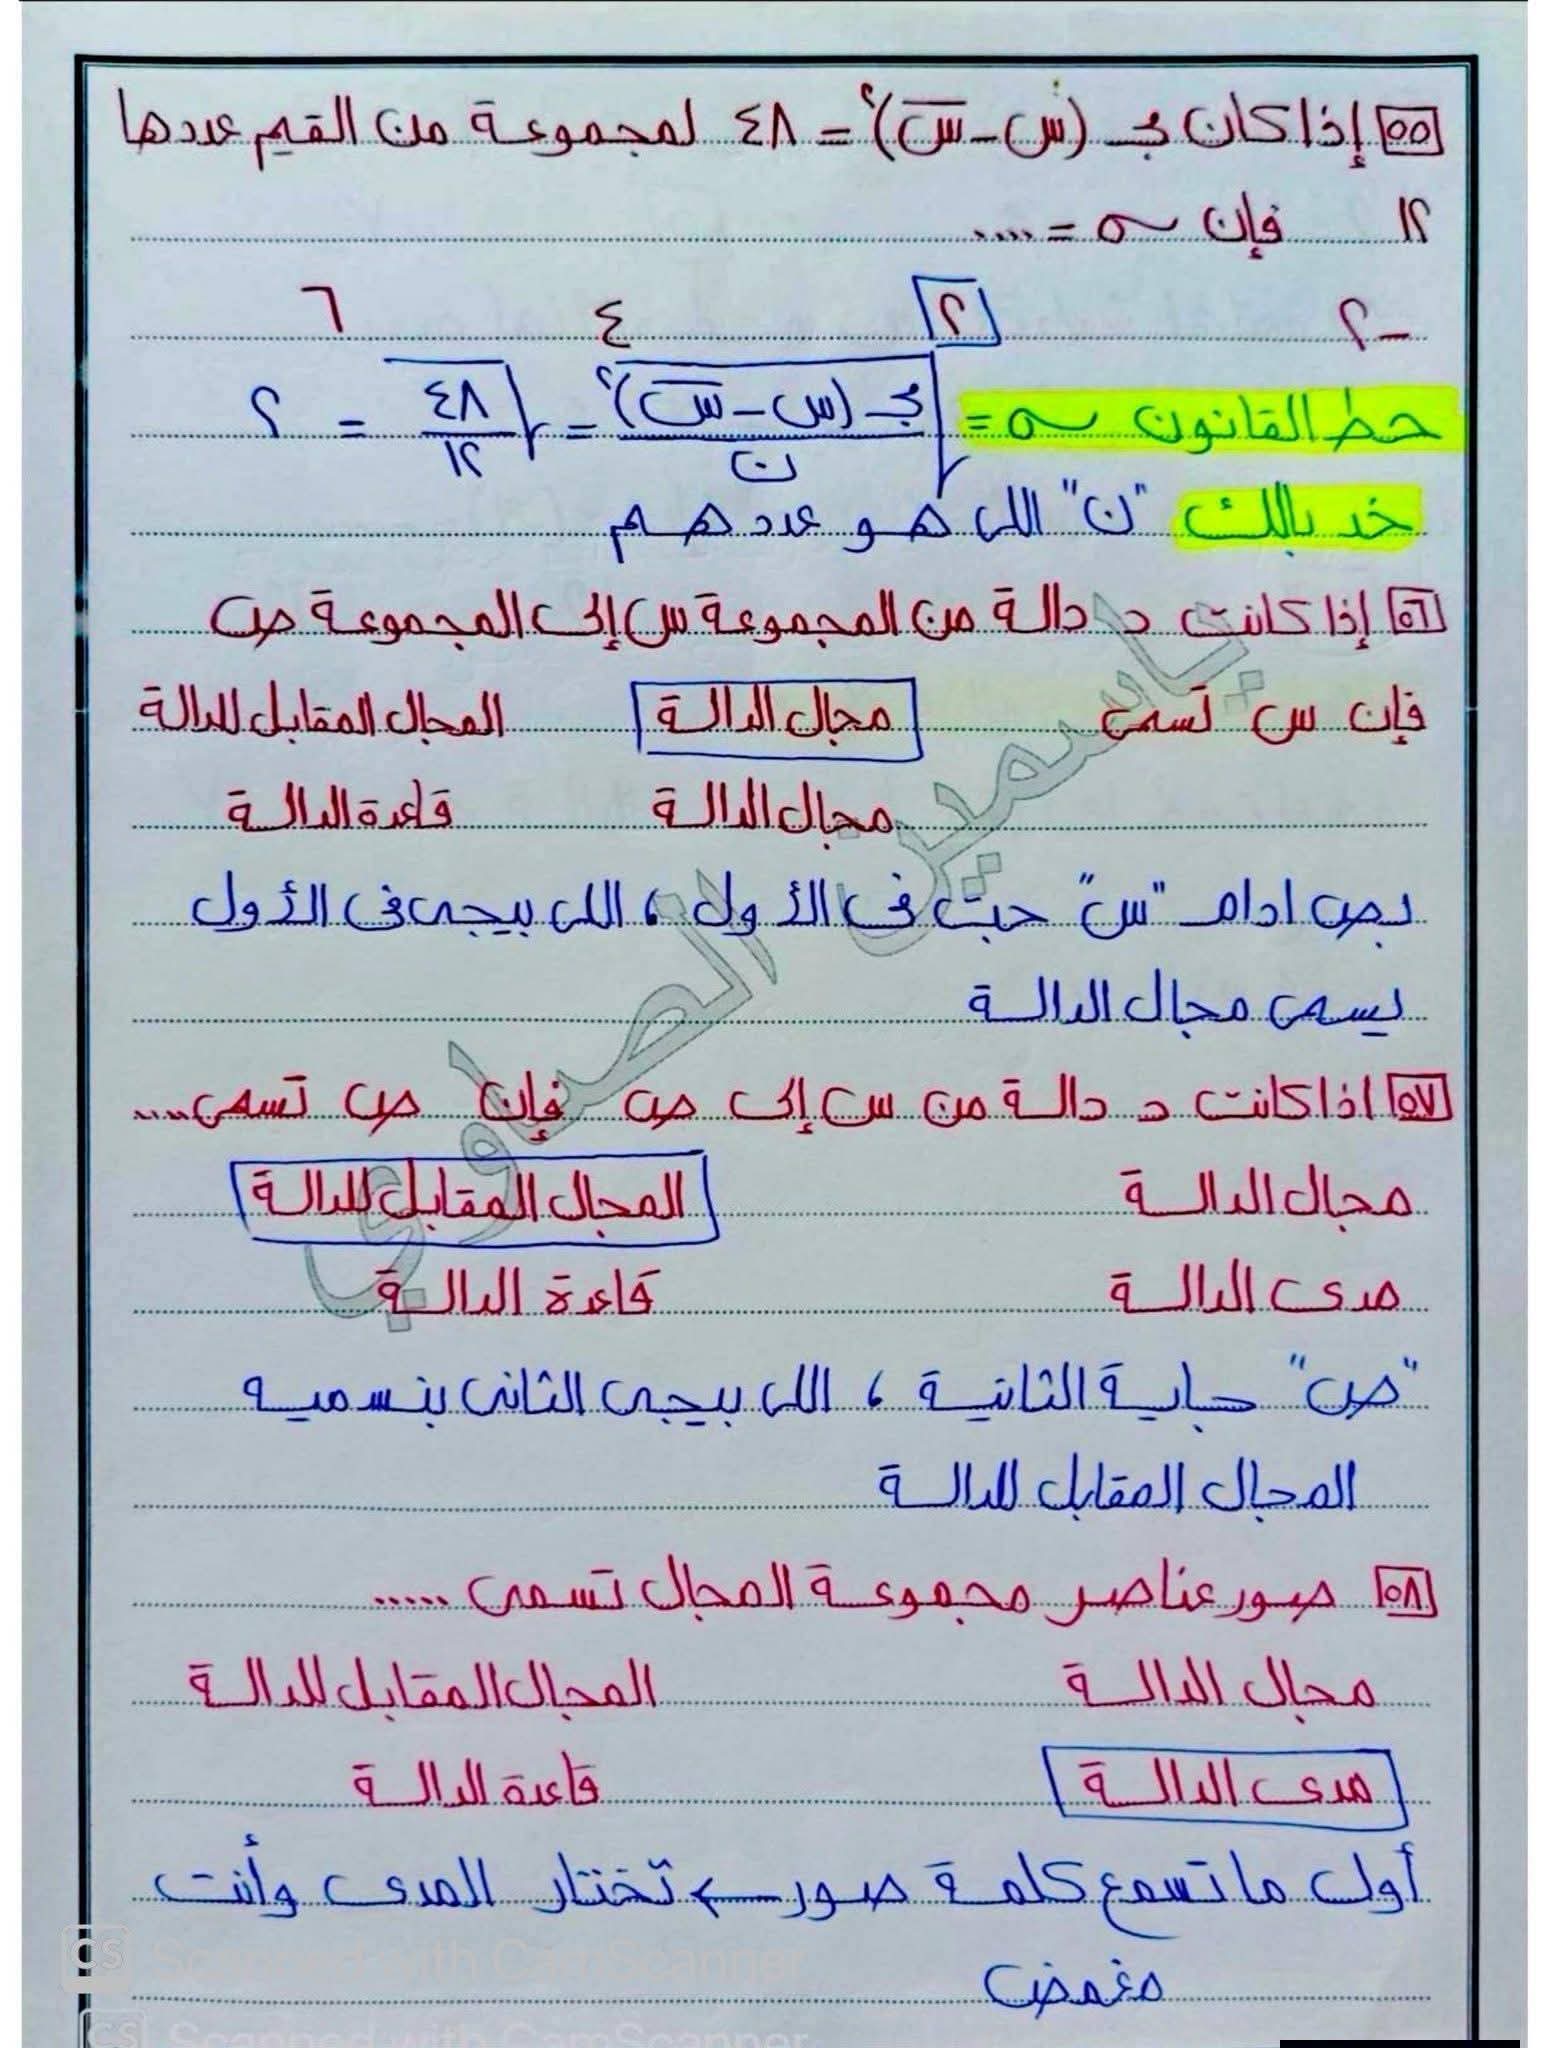 ٥٥ إذا كان مجـ (س - س̅)² = ٤٨ لمجموعة من القيم عددها
١٢ فإن σ = ....
-٢ ٢ ٤ ٦
حط القانون σ = √(مجـ (س - س̅)² / ن) = √(٤٨ / ١٢) = ٢
خد بالك "ن" اللى هو عددهم
٥٦ إذا كانت د دالة من المجموعة س إلى المجموعة ص
فإن س تسمى مجال الدالة المجال المقابل للدالة
مجال الدالة قاعدة الدالة
بص ادام "س" جت فى الأول ، اللى بيجى فى الأول
يسمى مجال الدالة
٥٧ اذا كانت د دالة من س إلى ص فإن ص تسمى ....
مجال الدالة المجال المقابل للدالة
مدى الدالة قاعدة الدالة
"ص" جاية الثانية ، اللى بيجى الثانى بنسميه
المجال المقابل للدالة
٥٨ صور عناصر مجموعة المجال تسمى .....
مجال الدالة المجال المقابل للدالة
مدى الدالة قاعدة الدالة
أول ما تسمع كلمة صور ← تختار المدى وأنت
مغمض
ياسمين الصاوي
CS Scanned with CamScanner
CS Scanned with CamScanner